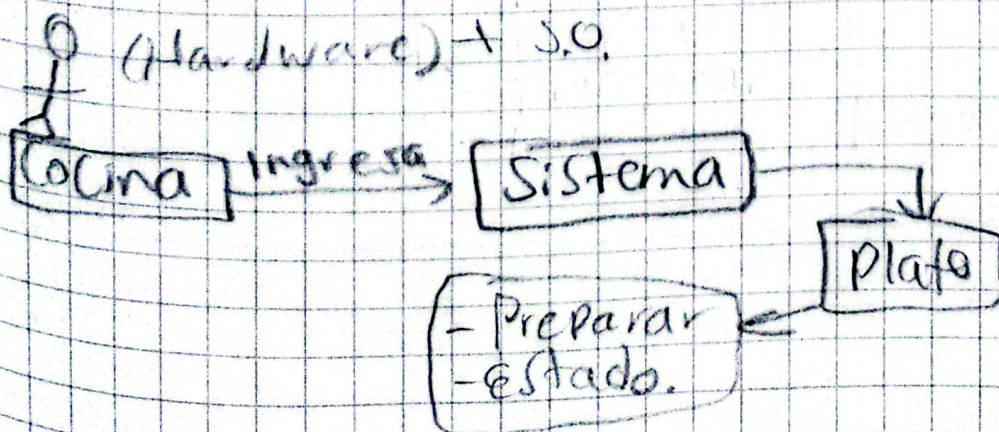 (Hardware) + S.O.
Cocina
Ingresa
Sistema
Plato
- Preparar
- Estado.